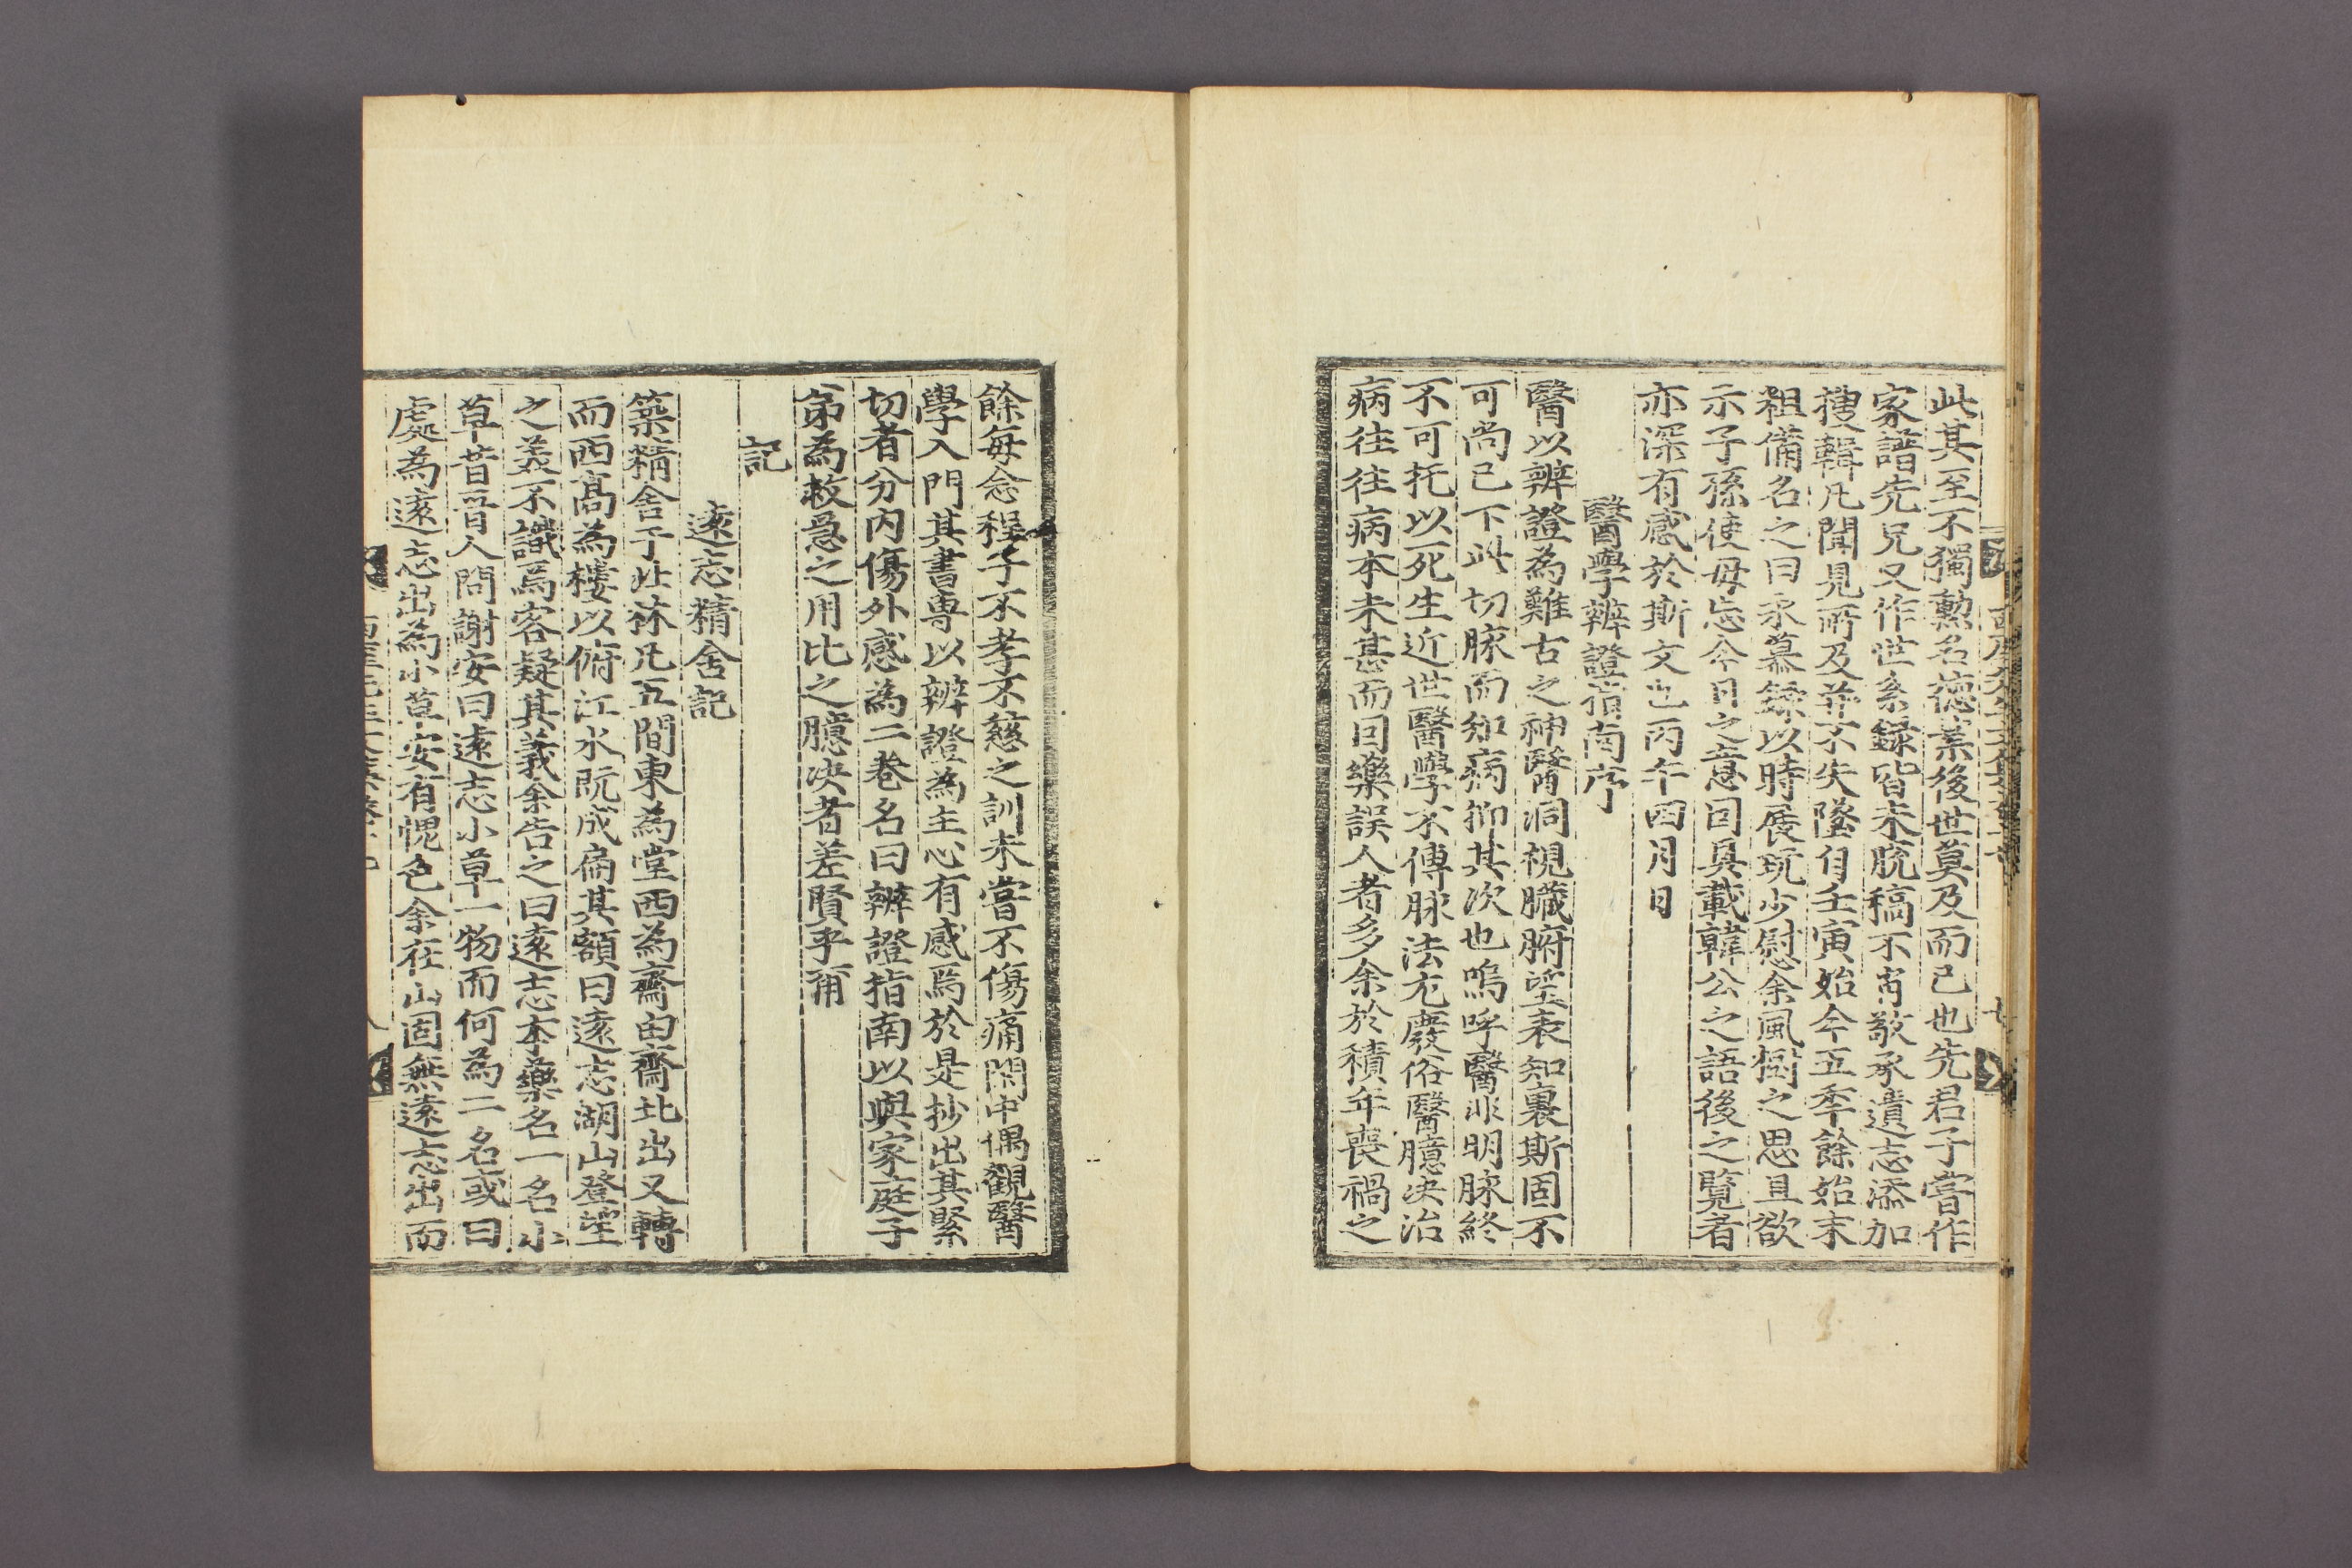 此其至不獨勲名德業後世莫及而已也先君子嘗作
家譜先兄又作世系録皆未脫稿不肖敬承遺志添加
搜輯凡聞見所及幷不失墜自壬寅始今五年餘始末
祖備名之曰永慕録以時展玩少慰余風樹之思且欲
示子孫使毋忘今日之意因具載韓公之語後之覽者
亦深有感於斯文也丙午四月日
醫學辨證指南序
醫以辨證為難古之神醫洞視臟腑望表知裏斯固不
可尚已下此切脉而知病抑其次也嗚呼醫非明脉終
不可托以死生近世醫學不傳脉法尤廢俗醫臆决治
病往往病本未甚而因藥誤人者多余於積年喪禍之
餘每念程子不孝不慈之訓未嘗不傷痛閑中偶觀醫
學入門其書專以辨證為主心有感焉於是抄出其緊
切者分内傷外感為二卷名曰辨證指南以與家庭子
弟為救急之用比之臆决者差賢乎爾
記
遠志精舍記
築精舍于北林凡五間東為堂西為齋由齋北出又轉
而西高為樓以俯江水旣成扁其額曰遠志湖山登望
之美不識焉客疑其義余告之曰遠志本藥名一名小
草昔晉人問謝安曰遠志小草一物而何為二名或曰
處為遠志出為小草安有愧色余在山固無遠志出而
八